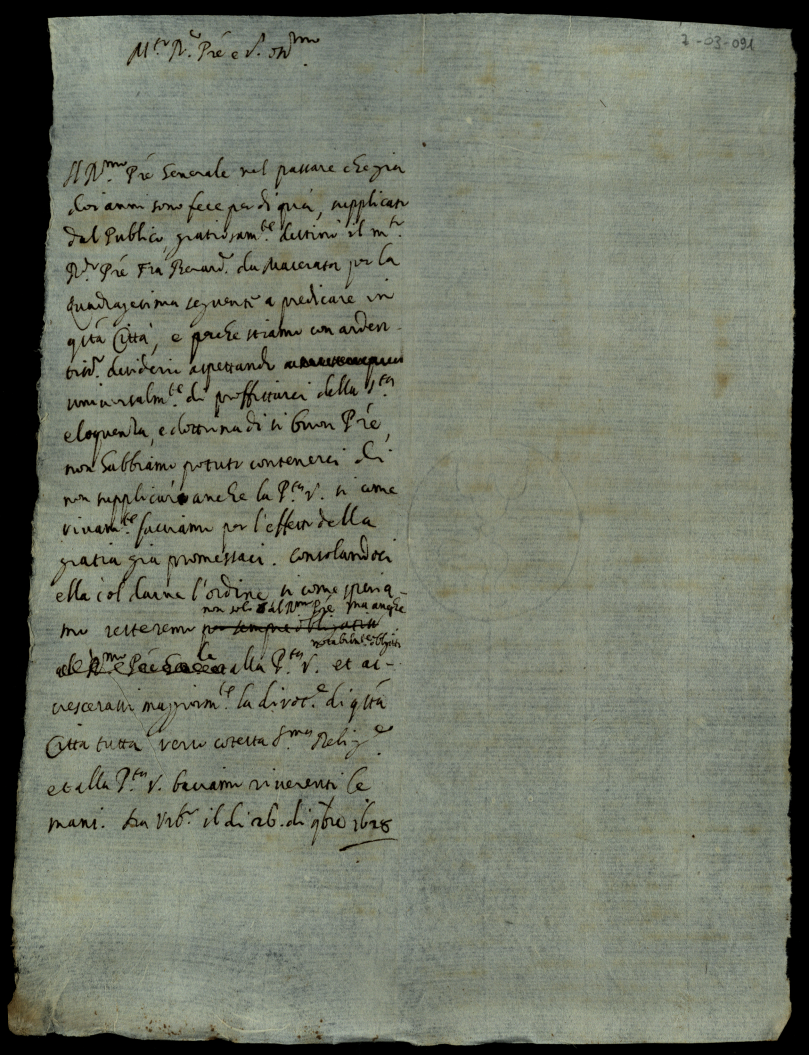 7-03-091
M.to R. Pre e S. oss.mo
Il R.mo Pre Generale nel passare che già
doi anni sono fece per di quà, supplicato
dal Publico, gratiosam.te destinò il m.to
R.do Pre Fra Berard.o da Macerata per la
Quadragesima seguente a predicare in
q.sta Città, e perche stiamo con arden-
tiss.o desiderio aspettando
universalm.te di proffittarci della s.ta
eloquenza, e dottrina di si buon Pre,
non habbiamo potuto contenerci di
non supplicare anche la P.tà V. si come
vivam.te facciamo per l'effetto della
gratia già promessaci. Consolandoci
ella col darne l'ordine si come speria-
non solo dal R.mo Pre ma anche
mo resteremo per sempre obligatiss.
notabilm.te obligati
alla P.tà V. et ac-
crescerassi maggiorm.te la divot.e di q.sta
Città tutta verso cotesta S.ma Relig.e
et alla P.tà V. baciamo riverenti le
mani. Da Urb.o il di 26. di 9bre 1628